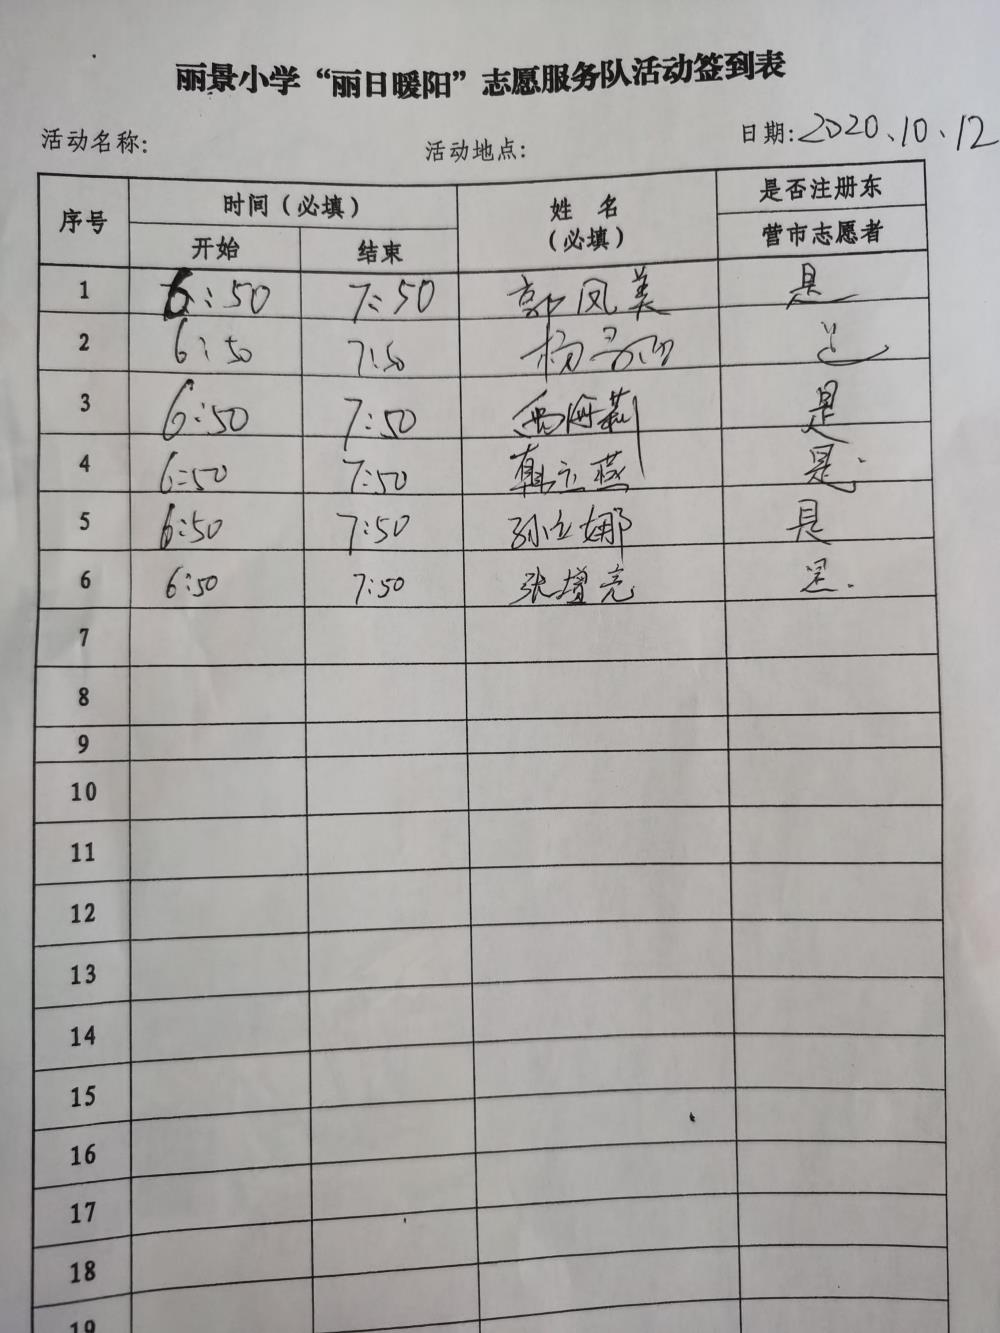 丽景小学“丽日暖阳”志愿服务队活动签到表
活动名称: 活动地点: 日期:2020、10、12
序号 时间(必填) 姓 名 (必填) 是否注册东
开始 结束 营市志愿者
1 6:50 7:50 郭凤美 是
2 6:50 7:50 杨 是
3 6:50 7:50 是
4 6:50 7:50 韩立燕 是
5 6:50 7:50 孙立娜 是
6 6:50 7:50 张增亮 是
7
8
9
10
11
12
13
14
15
16
17
18
19